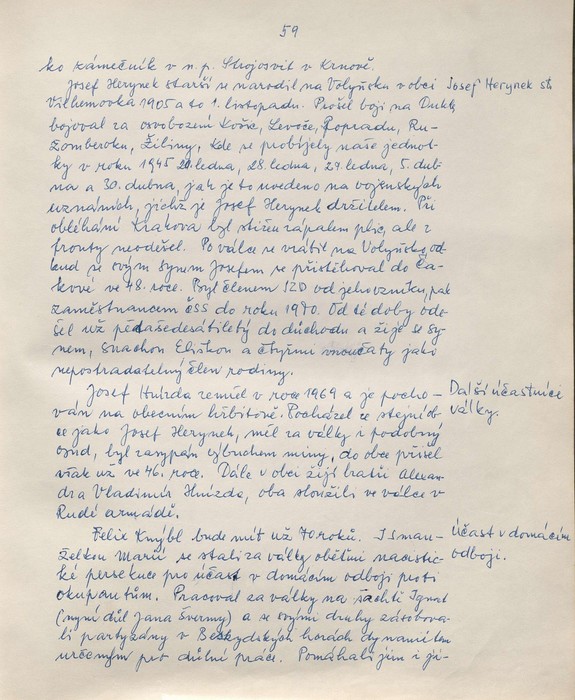 59
ko zámečník v n. p. Strojosvit v Krnově.
Josef Herynek starší se narodil na Volyňsku v obci
Josef Herynek st.
Vilhemovka 1905 a to 1. listopadu. Prošel boji na Dukle,
bojoval za osvobození Košic, Levoče, Popradu, Ru-
žomberoku, Žiliny, kde se probíjely naše jednot-
ky v roku 1945 20. ledna, 28. ledna, 29. ledna, 5. dub-
na a 30. dubna, jak je to uvedeno na vojenských
uznáních, jichž je Josef Herynek držitelem. Při
obléhání Krakova byl stižen zápalem plic, ale z
fronty neodešel. Po válce se vrátil na Volyňsko, od-
kud se svým synem Josefem se přistěhoval do Ča-
kové ve 48. roce. Byl členem JZD od jeho vzniku, pak
zaměstnancem ČSS do roku 1970. Od té doby ode-
šel už pětašedesátiletý do důchodu a žije se sy-
nem, snachou Eliškou a čtyřmi vnoučaty jako
nepostradatelný člen rodiny.
Josef Hnízda zemřel v roce 1969 a je pocho-
Další účastníci
ván na obecním hřbitově. Pocházel ze stejné ob-
války.
ce jako Josef Herynek, měl za války i podobný
osud, byl zasypán výbuchem miny, do obce přišel
však už ve 46. roce. Dále v obci žijí bratři Alexan-
dr a Vladimír Hnízda, oba sloužili ve válce v
Rudé armádě.
Felix Knýbl bude mít už 70 roků. I s man-
Účast v domácím
želkou Marií se stali za války obětmi nacistic-
odboji.
ké persekuce pro účast v domácím odboji proti
okupantům. Pracoval za války na šachtě Ignát
(nyní důl Jana Švermy) a se svými druhy zásobova-
li partyzány v Beskydských horách dynamitem
určeným pro důlní práce. Pomáhali jim i ji-